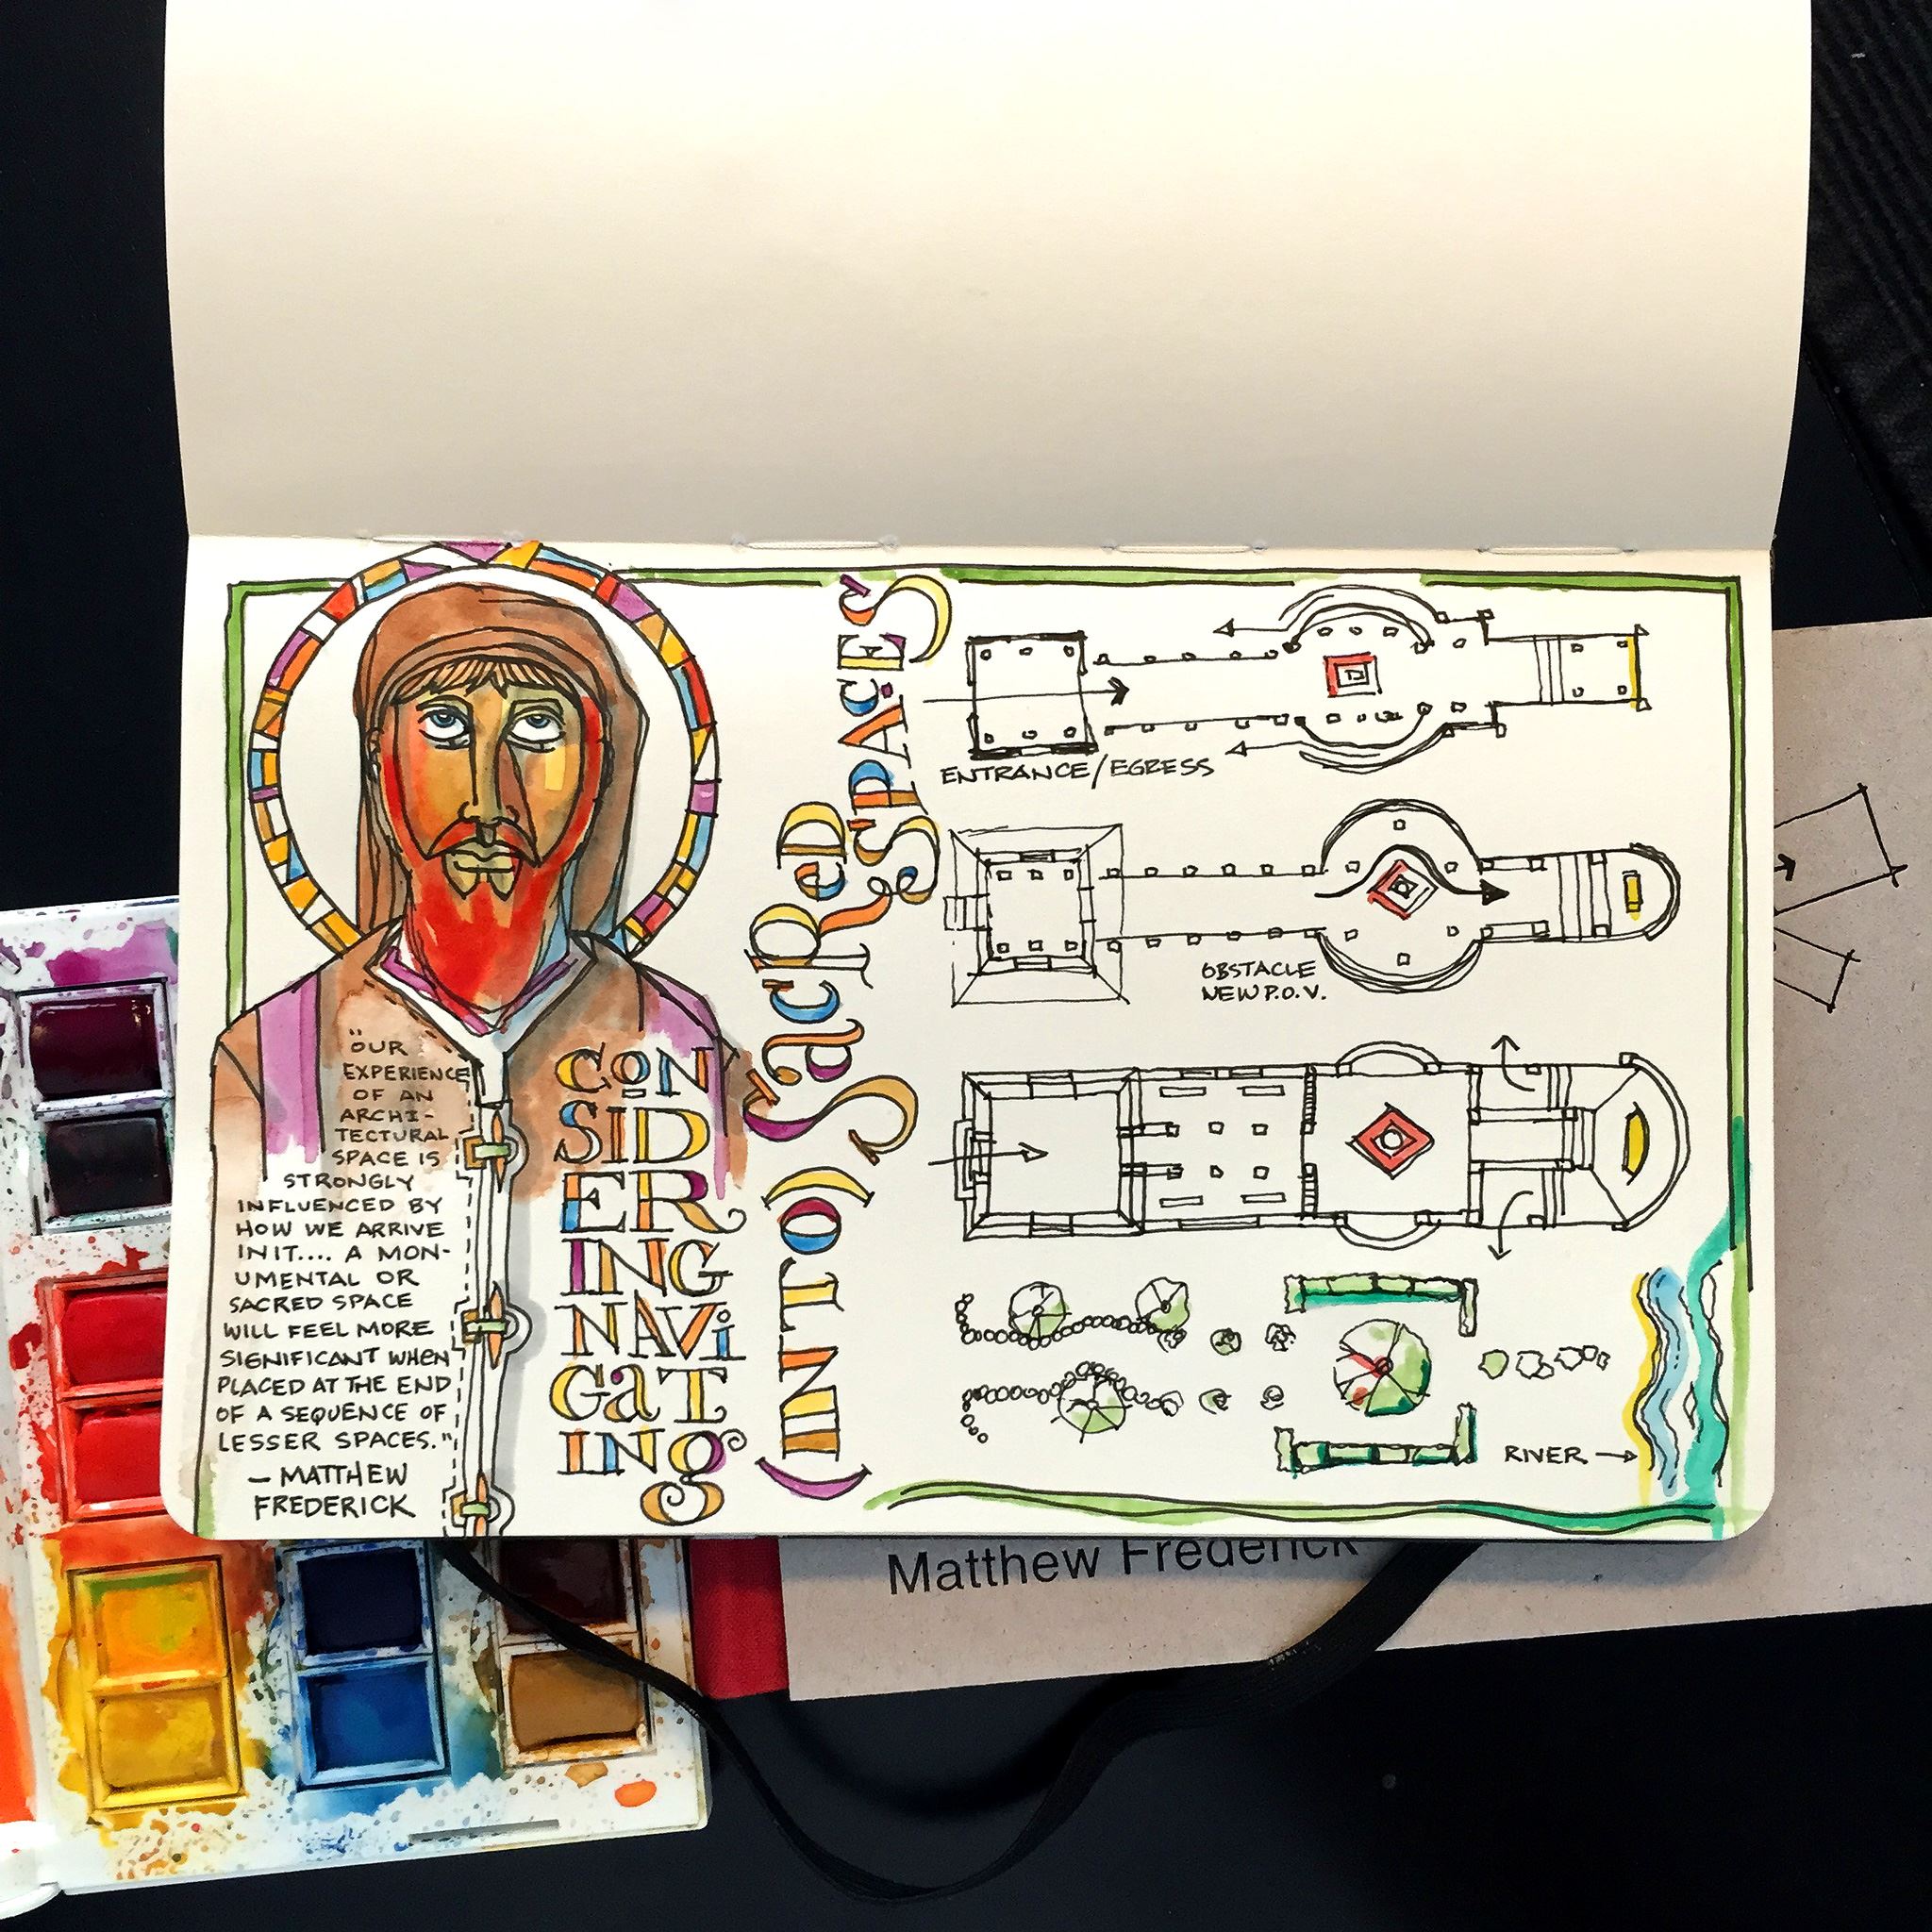 "OUR
EXPERIENCE
OF AN
ARCHI-
TECTURAL
SPACE IS
STRONGLY
INFLUENCED BY
HOW WE ARRIVE
IN IT.... A MON-
UMENTAL OR
SACRED SPACE
WILL FEEL MORE
SIGNIFICANT WHEN
PLACED AT THE END
OF A SEQUENCE OF
LESSER SPACES."
— MATTHEW
FREDERICK
CON
SID
ER
ING
NAVi
GaT
ING
(INTO) SacReD
SPACES
ENTRANCE/EGRESS
OBSTACLE
NEW P.O.V.
RIVER
Matthew Frederick